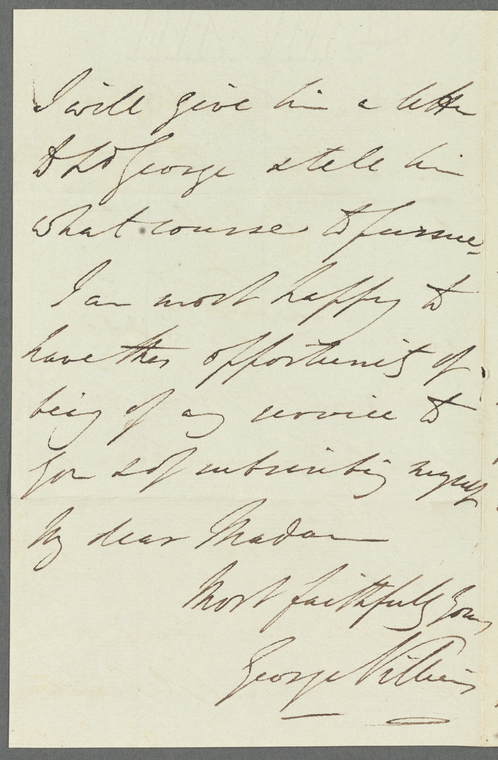 I will give him a letter
to Ld George & tell him
what course to pursue.
I am most happy to
have this opportunity of
being of any service to
you & of subscribing myself
My dear Madam
Most faithfully yours
George Villiers